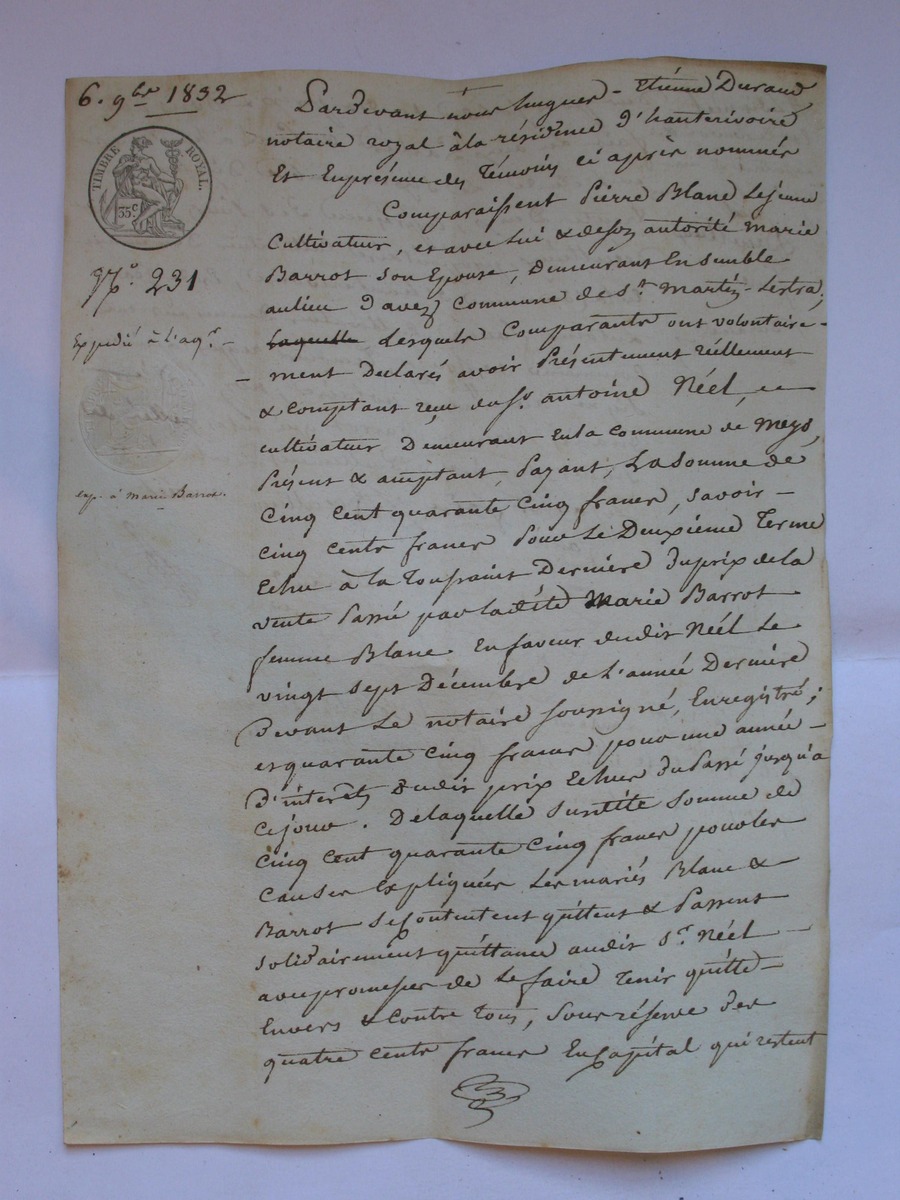 6. 9bre 1832
TIMBRE ROYAL.
35 c
N° 231
Expédié à l'aqr. —
exp. à Marie Barrot.
Pardevant nous hugues - Etiénne Durand,
notaire royal à la résidence d'hauterivoire
Et Enprésence des Témoins ci après nommés
Comparaissent Pierre Blanc Lejeune
Cultivateur, et avec Lui & deson autorité Marie
Barrot Son Epouse, Demeurant Ensemble
aulieu d'avez Commune de St. Martin-Lestra,
laquelle Lesquels Comparants ont volontaire-
- ment Declarés avoir Présentement réellement
& Comptant reçu du Sr. antoine Néel, —
cultivateur Demeurant Enla Commune de Meys,
Présent & acceptant, Payant, La Somme de
Cinq Cent quarante Cinq francs, Savoir —
Cinq Cents francs Pour Le Deuxième Terme
Echu à La Toussaint Dernière Duprix dela
vente Passée par Ladite Marie Barrot
femme Blanc En faveur dudit Néel Le
vingt Sept Décembre de L'année Dernière
Devant Le notaire Soussigné, Enregistré;
et quarante Cinq francs pour une année —
D'intérêts dudit prix Echus du Passé jusqu'à
Cejour. Delaquelle Susdite Somme de
Cinq Cent quarante Cinq francs pour les
Causes Expliquées Les mariés Blanc & —
Barrot Secontentent quittent & Passent
Solidairement quittance audit Sr. Néel —
avec promesses de Le faire Tenir quitte —
Envers & Contre Tous, Sous réserve des
quatre Cents francs En Capital qui restent